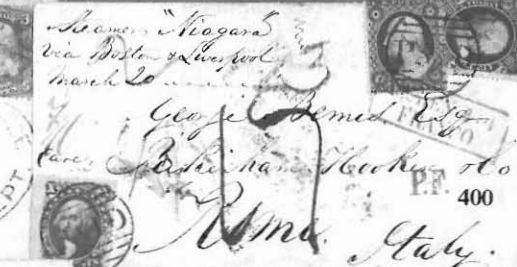 Steamer "Niagara"
via Boston & Liverpool
March 20
George Bemis Esq
care Pakenham Hooker & Co
Rome.
Italy.
P.F.
400